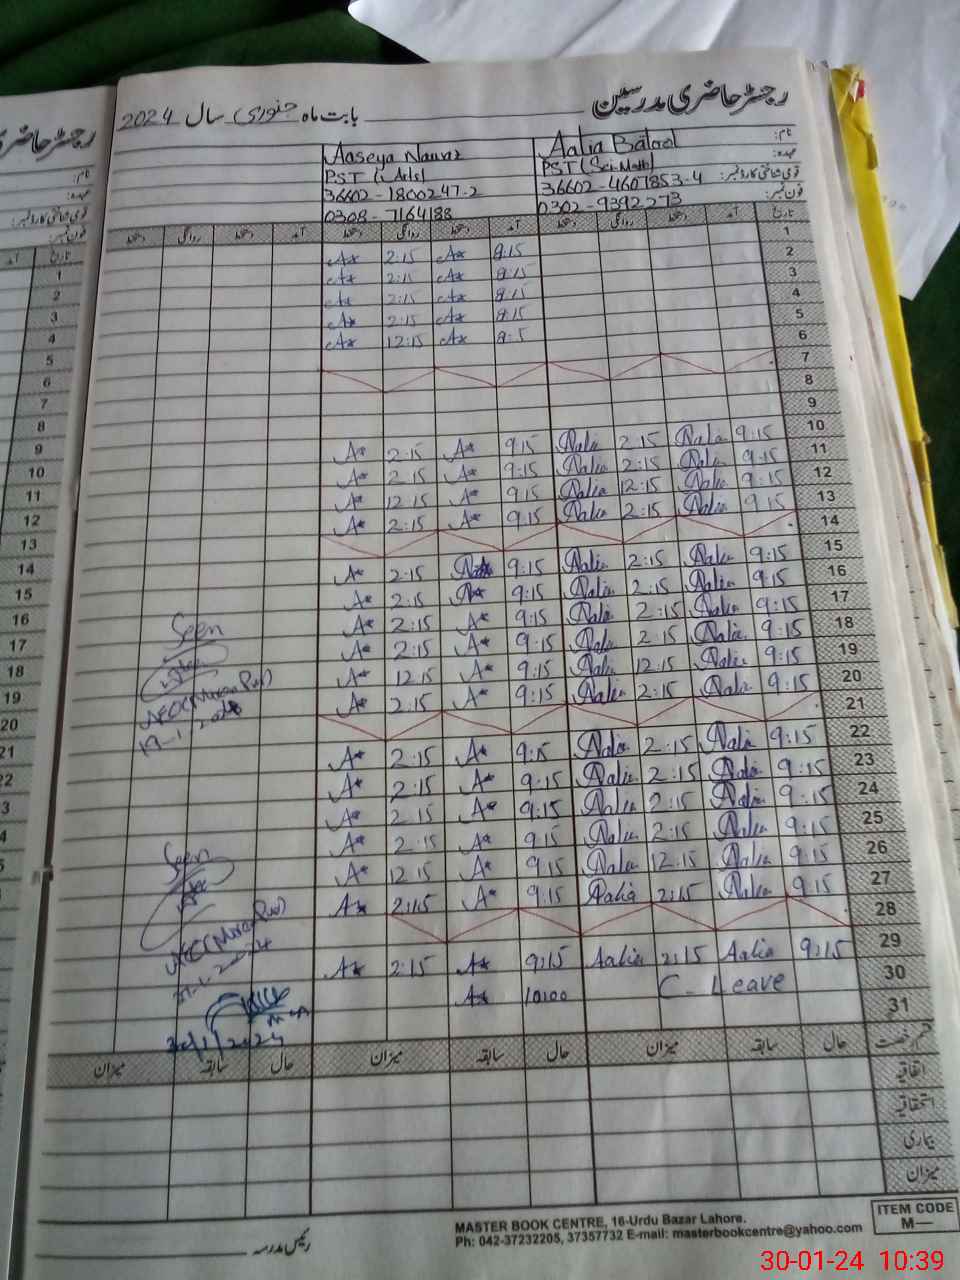 رجسٹر حاضری مدرسین بابت ماہ جنوری سال 2024
نام: Aalia Batool Aaseya Nawaz
عہدہ: PST (Sci-Math) PST (Arts)
قومی شناختی کارڈ نمبر: 36602-4607853-4 36602-1800247-2
فون نمبر: 0302-9392273 0308-7164188
تاریخ آمد دستخط روانگی دستخط آمد دستخط روانگی دستخط آمد دستخط روانگی دستخط
1
2 8:15 A* 2:15 A*
3 8:15 A* 2:15 A*
4 8:15 A* 2:15 A*
5 8:15 A* 2:15 A*
6 A* 12:15 A*
7
8
9
10 9:15 Aalia 2:15 Aalia 9:15 A* 2:15 A*
11 9:15 Aalia 2:15 Aalia 9:15 A* 2:15 A*
12 9:15 Aalia 12:15 Aalia 9:15 A* 12:15 A*
13 9:15 Aalia 2:15 Aalia 9:15 A* 2:15 A*
14
15 9:15 Aalia 2:15 Aalia 9:15 2:15 A*
16 9:15 Aalia 2:15 Aalia 9:15 A* 2:15 A*
17 9:15 Aalia 2:15 Aalia 9:15 A* 2:15 A*
18 9:15 Aalia 2:15 Aalia 9:15 A* 2:15 A*
19 9:15 Aalia 12:15 Aalia 9:15 A* 12:15 A*
20 9:15 Aalia 2:15 Aalia 9:15 A* 2:15 A*
21
22 9:15 Aalia 2:15 Aalia 9:15 A* 2:15 A*
23 9:15 Aalia 2:15 Aalia 9:15 A* 2:15 A*
24 9:15 Aalia 2:15 Aalia 9:15 A* 2:15 A*
25 9:15 Aalia 2:15 Aalia 9:15 A* 2:15 A*
26 9:15 Aalia 12:15 Aalia 9:15 A* 12:15 A*
27 9:15 Aalia 2:15 Aalia 9:15 A* 2:15 A*
28
29 9:15 Aalia 2:15 Aalia 9:15 A* 2:15 A*
30 C. Leave 10:00 A*
31
Seen
19-1-2024
Seen
30/1/2024
قسم رخصت حال سابقہ میزان حال سابقہ میزان حال سابقہ میزان
اتفاقیہ
استحقاقیہ
بیماری
میزان
رئیس مدرسہ
MASTER BOOK CENTRE, 16-Urdu Bazar Lahore.
Ph: 042-37232205, 37357732 E-mail: masterbookcentre@yahoo.com
ITEM CODE
M—
رجسٹر حاضری
نام:
عہدہ:
قومی شناختی کارڈ نمبر:
فون نمبر:
تاریخ آمد
1
2
3
4
5
6
7
8
9
10
11
12
13
14
15
16
17
18
19
20
21
22
30-01-24 10:39